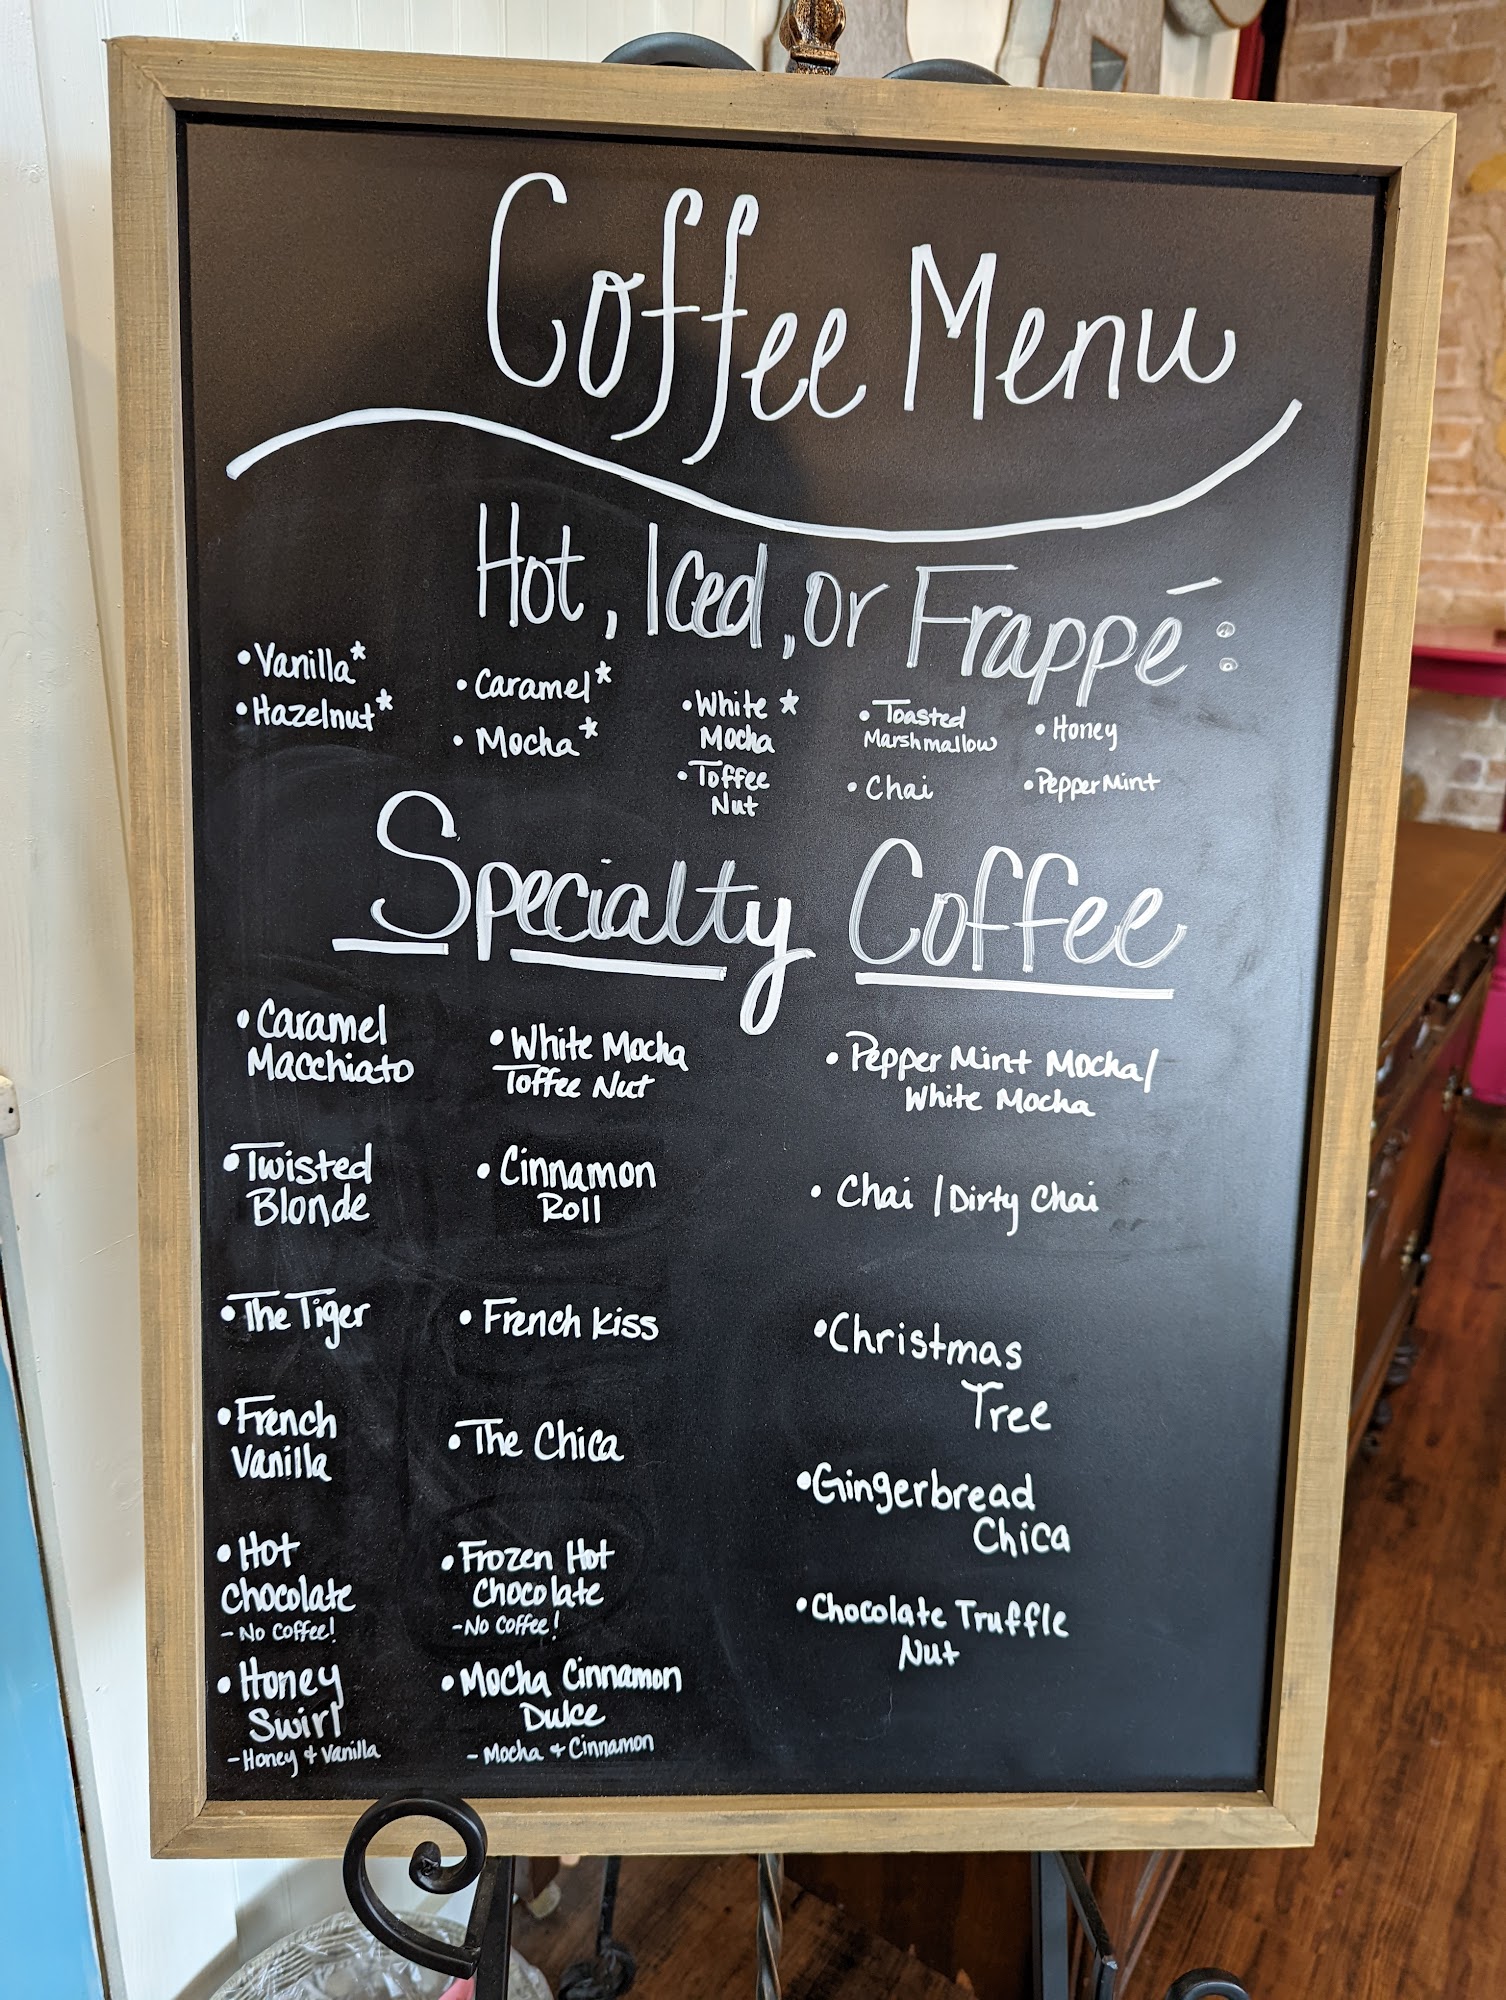 Coffee Menu
Hot, Iced, or Frappé:
• Vanilla*
• Hazelnut*
• Caramel*
• Mocha*
• White *
Mocha
• Toffee
Nut
• Toasted
Marshmallow
• Chai
• Honey
• PepperMint
Specialty Coffee
• Caramel
Macchiato
• Twisted
Blonde
• The Tiger
• French
Vanilla
• Hot
Chocolate
- No Coffee!
• Honey
Swirl
- Honey + Vanilla
• White Mocha
Toffee Nut
• Cinnamon
Roll
• French Kiss
• The Chica
• Frozen Hot
Chocolate
- No Coffee!
• Mocha Cinnamon
Dulce
- Mocha + Cinnamon
• Pepper Mint Mocha/
White Mocha
• Chai / Dirty Chai
• Christmas
Tree
• Gingerbread
Chica
• Chocolate Truffle
Nut